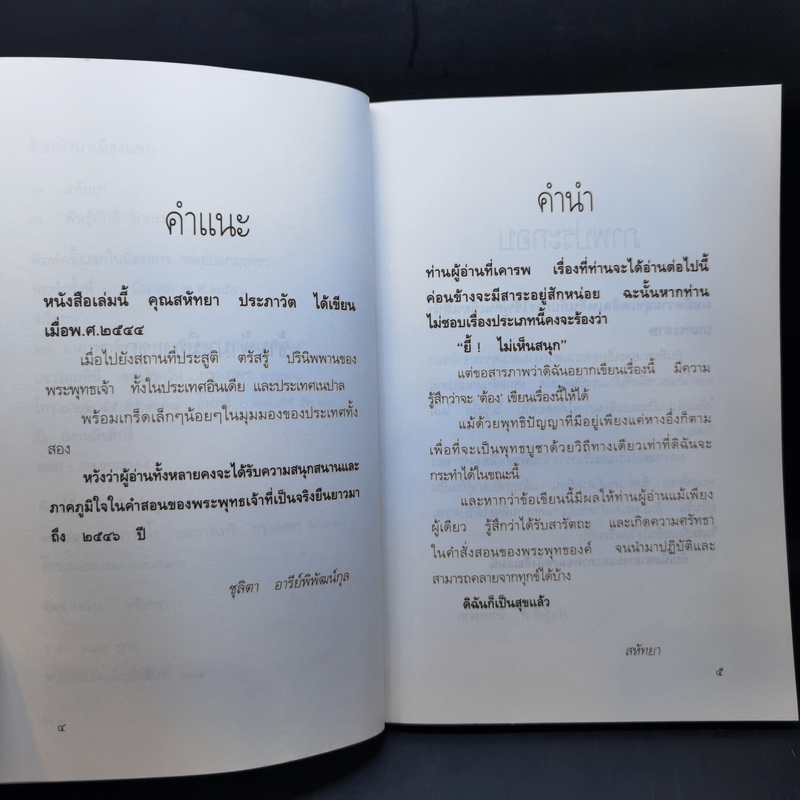 คำแนะ
หนังสือเล่มนี้ คุณสหัทยา ประภาวัต ได้เขียน
เมื่อพ.ศ.๒๕๔๔
เมื่อไปยังสถานที่ประสูติ ตรัสรู้ ปรินิพพานของ
พระพุทธเจ้า ทั้งในประเทศอินเดีย และประเทศเนปาล
พร้อมเกร็ดเล็กๆน้อยๆในมุมมองของประเทศทั้ง
สอง
หวังว่าผู้อ่านทั้งหลายคงจะได้รับความสนุกสนานและ
ภาคภูมิใจในคำสอนของพระพุทธเจ้าที่เป็นจริงยืนยาวมา
ถึง ๒๕๔๖ ปี
ชุลิตา อารีย์พิพัฒน์กุล
๔
คำนำ
ท่านผู้อ่านที่เคารพ เรื่องที่ท่านจะได้อ่านต่อไปนี้
ค่อนข้างจะมีสาระอยู่สักหน่อย ฉะนั้นหากท่าน
ไม่ชอบเรื่องประเภทนี้คงจะร้องว่า
“ยี้ ! ไม่เห็นสนุก”
แต่ขอสารภาพว่าดิฉันอยากเขียนเรื่องนี้ มีความ
รู้สึกว่าจะ ‘ต้อง’ เขียนเรื่องนี้ให้ได้
แม้ด้วยพุทธิปัญญาที่มีอยู่เพียงแค่หางอึ่งก็ตาม
เพื่อที่จะเป็นพุทธบูชาด้วยวิถีทางเดียวเท่าที่ดิฉันจะ
กระทำได้ในขณะนี้
และหากว่าข้อเขียนนี้มีผลให้ท่านผู้อ่านแม้เพียง
ผู้เดียว รู้สึกว่าได้รับสารัตถะ และเกิดความศรัทธา
ในคำสั่งสอนของพระพุทธองค์ จนนำมาปฏิบัติและ
สามารถคลายจากทุกข์ได้บ้าง
ดิฉันก็เป็นสุขแล้ว
สหัทยา
๕